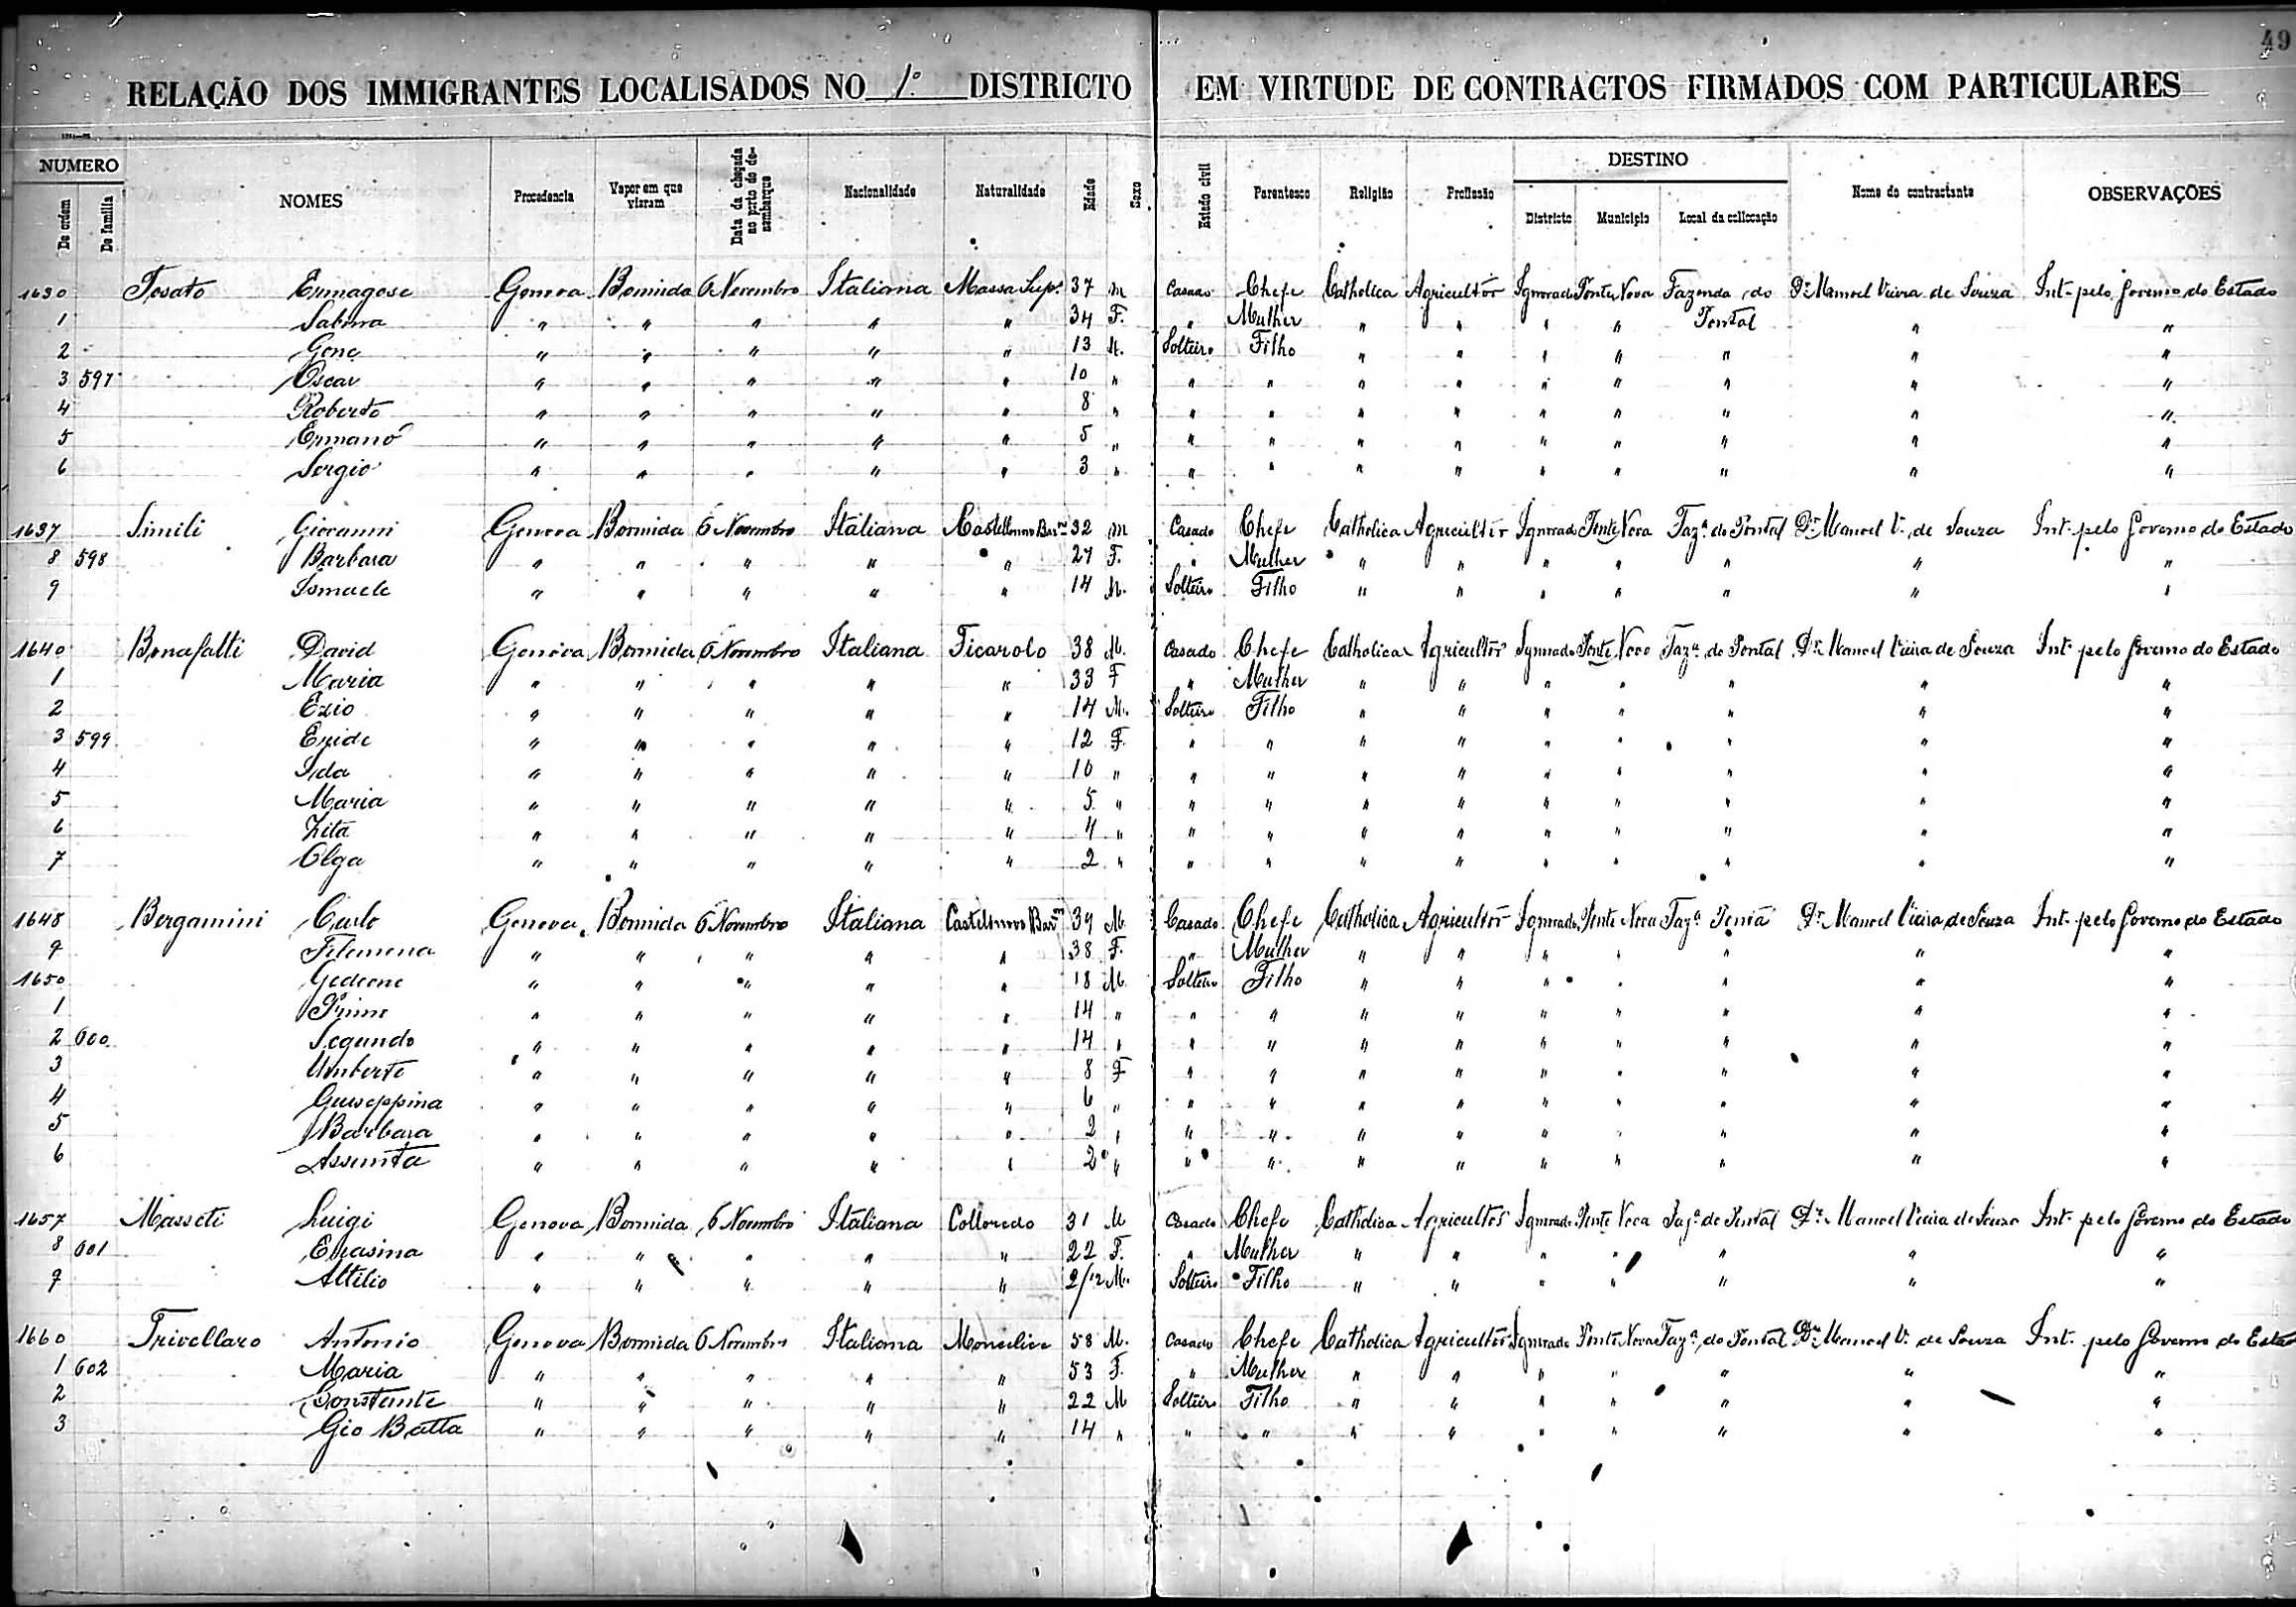 49
RELAÇÃO DOS IMMIGRANTES LOCALISADOS NO 1º DISTRICTO EM VIRTUDE DE CONTRACTOS FIRMADOS COM PARTICULARES
NUMERO De ordem De familia NOMES Procedencia Vapor em que vieram Data da chegada ao porto do desembarque Nacionalidade Naturalidade Edade Sexo Estado civil Parentesco Religião Profissão DESTINO Districto Municipio Local da collocação Nome do contractante OBSERVAÇÕES
1630 Tosato Ermagose Genova Bormida 6 Novembro Italiana Massa Supª 37 M Casado Chefe Catholica Agricultor Ignorado Ponte Nova Fazenda do Dr Manoel Vieira de Souza Int. pelo Governo do Estado
1 Sabina " " " " " 34 F. " Mulher " " " " Pontal " "
2 Gene " " " " " 13 M. Solteiro Filho " " " " " " "
3 597 Oscar " " " " " 10 " " " " " " " " " "
4 Roberto " " " " " 8 " " " " " " " " " "
5 Ermano " " " " " 5 " " " " " " " " " "
6 Sergio " " " " " 3 " " " " " " " " " "
1637 Simili Giovanni Genova Bormida 6 Novembro Italiana Castelnuovo Barno 32 M Casado Chefe Catholica Agricultor Ignorado Ponte Nova Fazª do Pontal Dr Manoel Vª de Souza Int. pelo Governo do Estado
8 598 Barbara " " " " " 27 F. " Mulher " " " " " " "
9 Ismaele " " " " " 14 M. Solteiro Filho " " " " " " "
1640 Bonafatti David Genova Bormida 6 Novembro Italiana Ficarolo 38 M. Casado Chefe Catholica Agricultor Ignorado Ponte Nova Fazª do Pontal Dr Manoel Vieira de Souza Int. pelo Governo do Estado
1 Maria " " " " " 33 F " Mulher " " " " " " "
2 Ezio " " " " " 14 M. Solteiro Filho " " " " " " "
3 599 Eride " " " " " 12 F. " " " " " " " " "
4 Ida " " " " " 10 " " " " " " " " " "
5 Maria " " " " " 5 " " " " " " " " " "
6 Zita " " " " " 4 " " " " " " " " " "
7 Olga " " " " " 2 " " " " " " " " " "
1648 Bergamini Carlo Genova Bormida 6 Novembro Italiana Castelnuovo Barno 39 M. Casado Chefe Catholica Agricultor Ignorado Ponte Nova Fazª Dr Manoel Vieira de Souza Int. pelo Governo do Estado
9 Filomena " " " " " 38 F. " Mulher " " " " " " "
1650 Gedeone " " " " " 18 M Solteiro Filho " " " " " " "
1 Primo " " " " " 14 " " " " " " " " " "
2 600 Segundo " " " " " 14 " " " " " " " " " "
3 Umberto " " " " " 8 F " " " " " " " " "
4 Guiseppina " " " " " 6 " " " " " " " " " "
5 Barbara " " " " " 2 " " " " " " " " " "
6 Assunta " " " " " 2 " " " " " " " " " "
1657 Masseti Luigi Genova Bormida 6 Novembro Italiana Colloredo 31 M Casado Chefe Catholica Agricultor Ignorado Ponte Nova Fazª do Pontal Dr Manoel Vieira de Souza Int. pelo Governo do Estado
8 601 Erasina " " " " " 22 F. " Mulher " " " " " " "
9 Attilio " " " " " 2/12 M. Solteiro Filho " " " " " " "
1660 Trivellaro Antonio Genova Bormida 6 Novembro Italiana Monselice 58 M. Casado Chefe Catholica Agricultor Ignorado Ponte Nova Fazª do Pontal Dr Manoel Vª de Souza Int. pelo Governo do Esta
1 602 Maria " " " " " 53 F. " Mulher " " " " " " "
2 Constante " " " " " 22 M Solteiro Filho " " " " " " "
3 Gio Batta " " " " " 14 " " " " " " " " " "